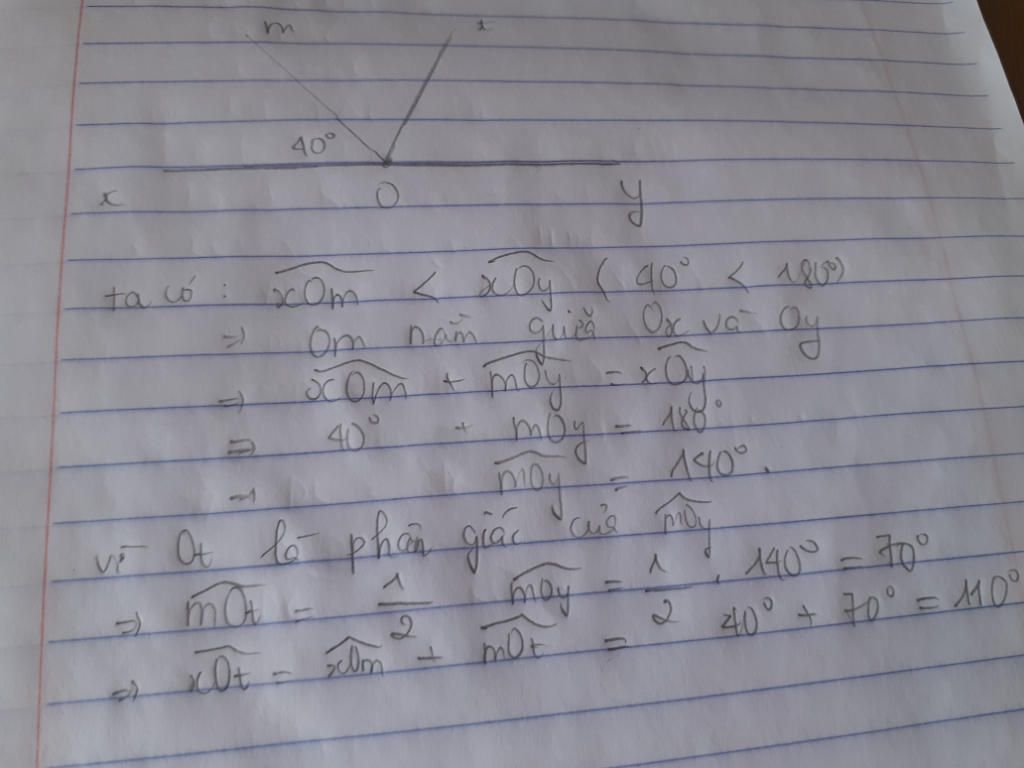 m t
40°
x O y
ta có : xOm < xOy ( 40° < 180°)
⇒ Om nằm giữa Ox và Oy
⇒ xOm + mOy = xOy
⇒ 40° + mOy = 180°
⇒ mOy = 140°.
vì Ot là phân giác của mOy
⇒ mOt = 1/2 mOy = 1/2 . 140° = 70°
⇒ xOt = xOm + mOt = 40° + 70° = 110°